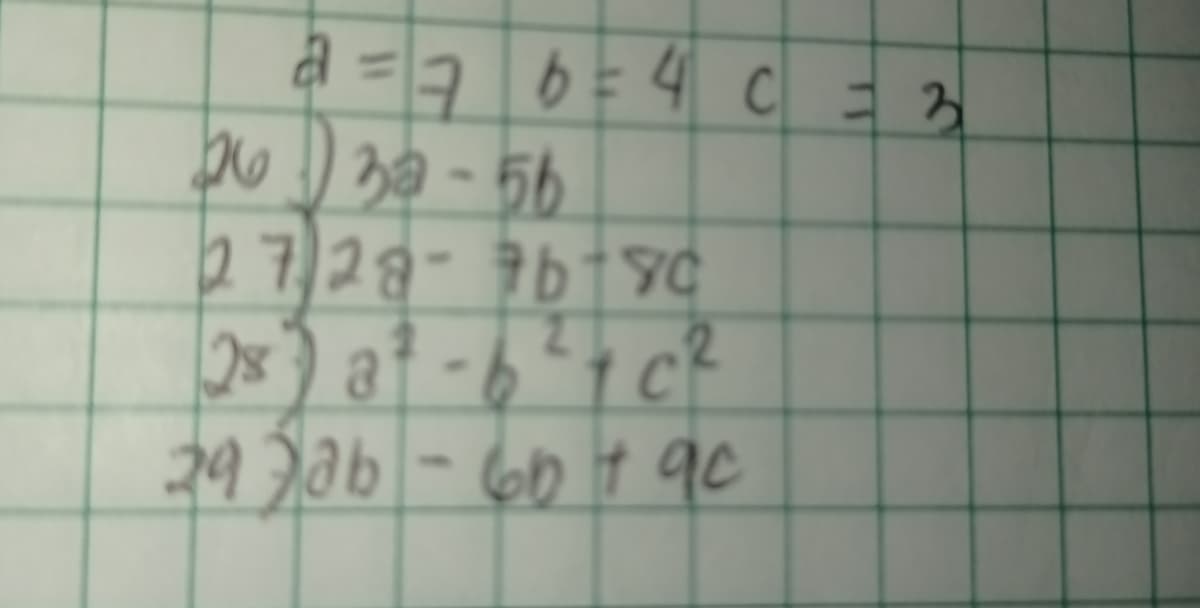 a = 7 b = 4 c = 3
26) 3a - 5b
27) 2a - 7b - 8c
28) a² - b² + c²
29) ab - 6b + 9c